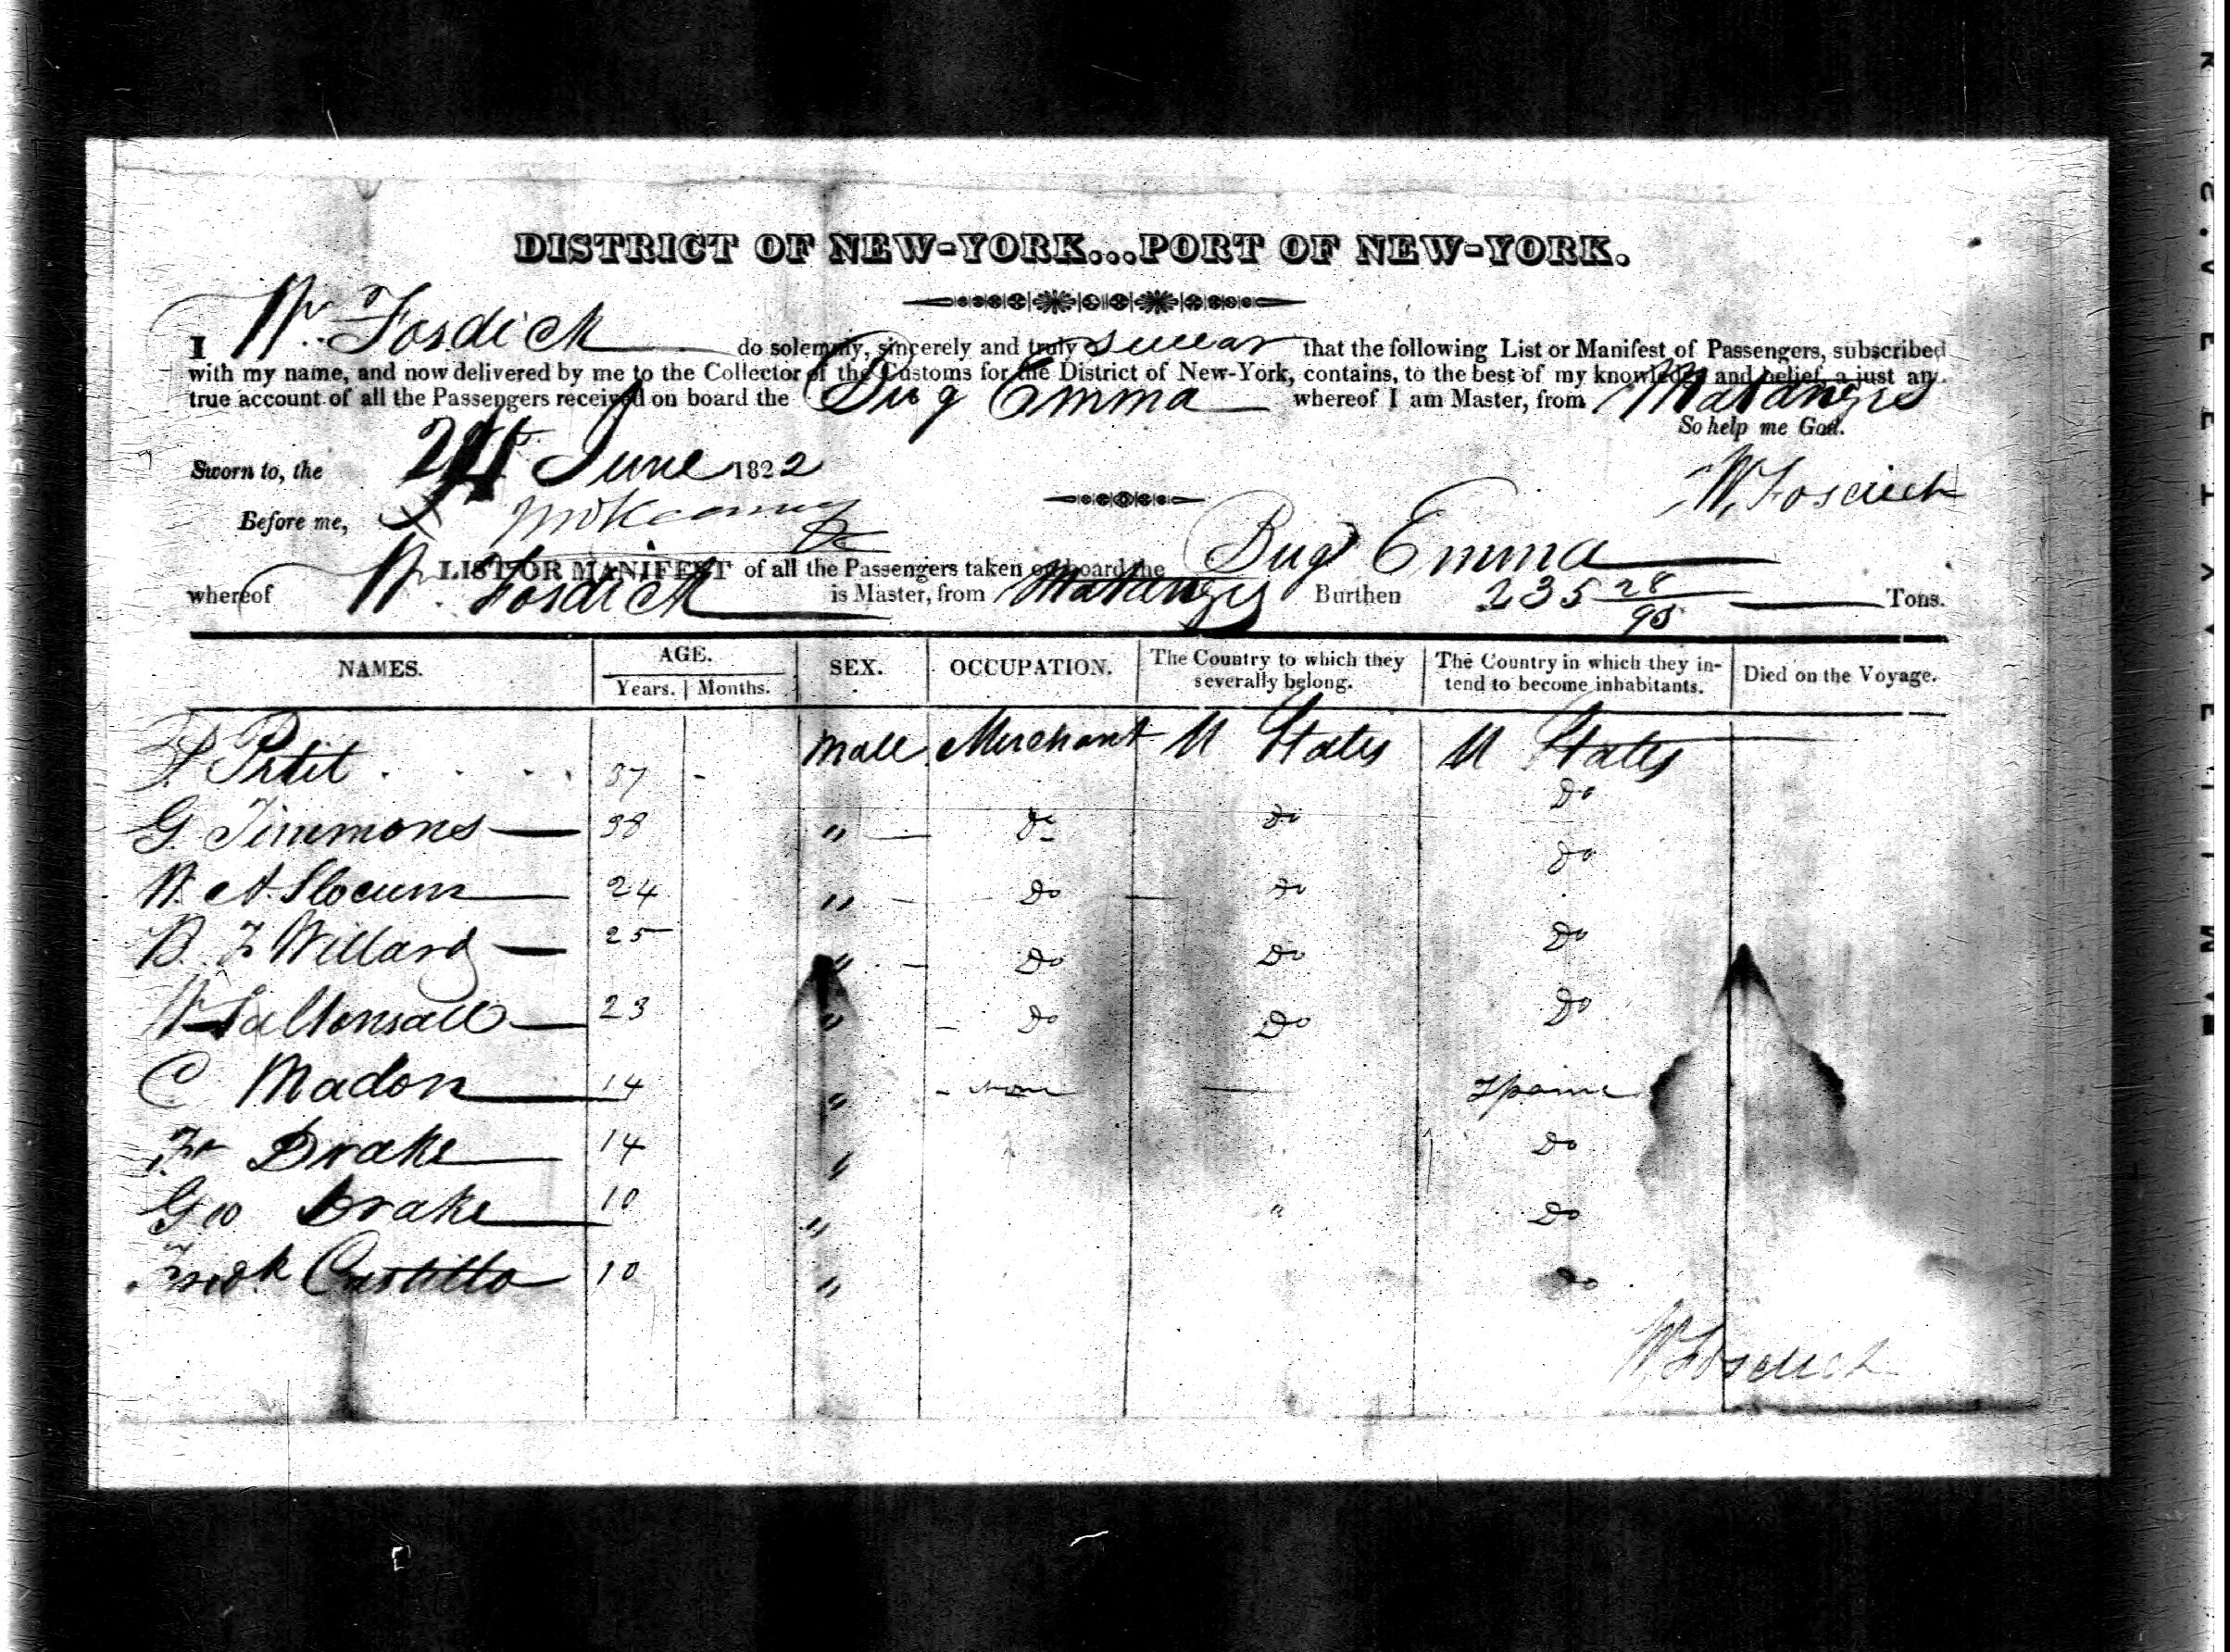 DISTRICT OF NEW-YORK...PORT OF NEW-YORK.
I W. Fosdick do solemnly, sincerely and truly swear that the following List or Manifest of Passengers, subscribed
with my name, and now delivered by me to the Collector of the Customs for the District of New-York, contains, to the best of my knowledge and belief, a just an
true account of all the Passengers received on board the Brig Emma whereof I am Master, from Matanzis
So help me God.
Sworn to, the 24 June 1822
W. Fosdick
Before me,
LIST OR MANIFEST of all the Passengers taken on board the Brig Emma
whereof W. Fosdick is Master, from Matanzis Burthen 235 28/95 Tons.
NAMES. AGE. Years. Months. SEX. OCCUPATION. The Country to which they severally belong. The Country in which they intend to become inhabitants. Died on the Voyage.
Petit 37 - Male Merchant U States U States
G. Timmons 38 " Do Do Do
W. A. Slocum 24 " Do Do Do
B. F Willard 25 " Do Do Do
W Saltonsall 23 " Do Do Do
C Madon 14 " - None — Spain
Fr Drake 14 " Do
Geo Drake 10 " " Do
Fredk Castillo 10 " Do
W Fosdick